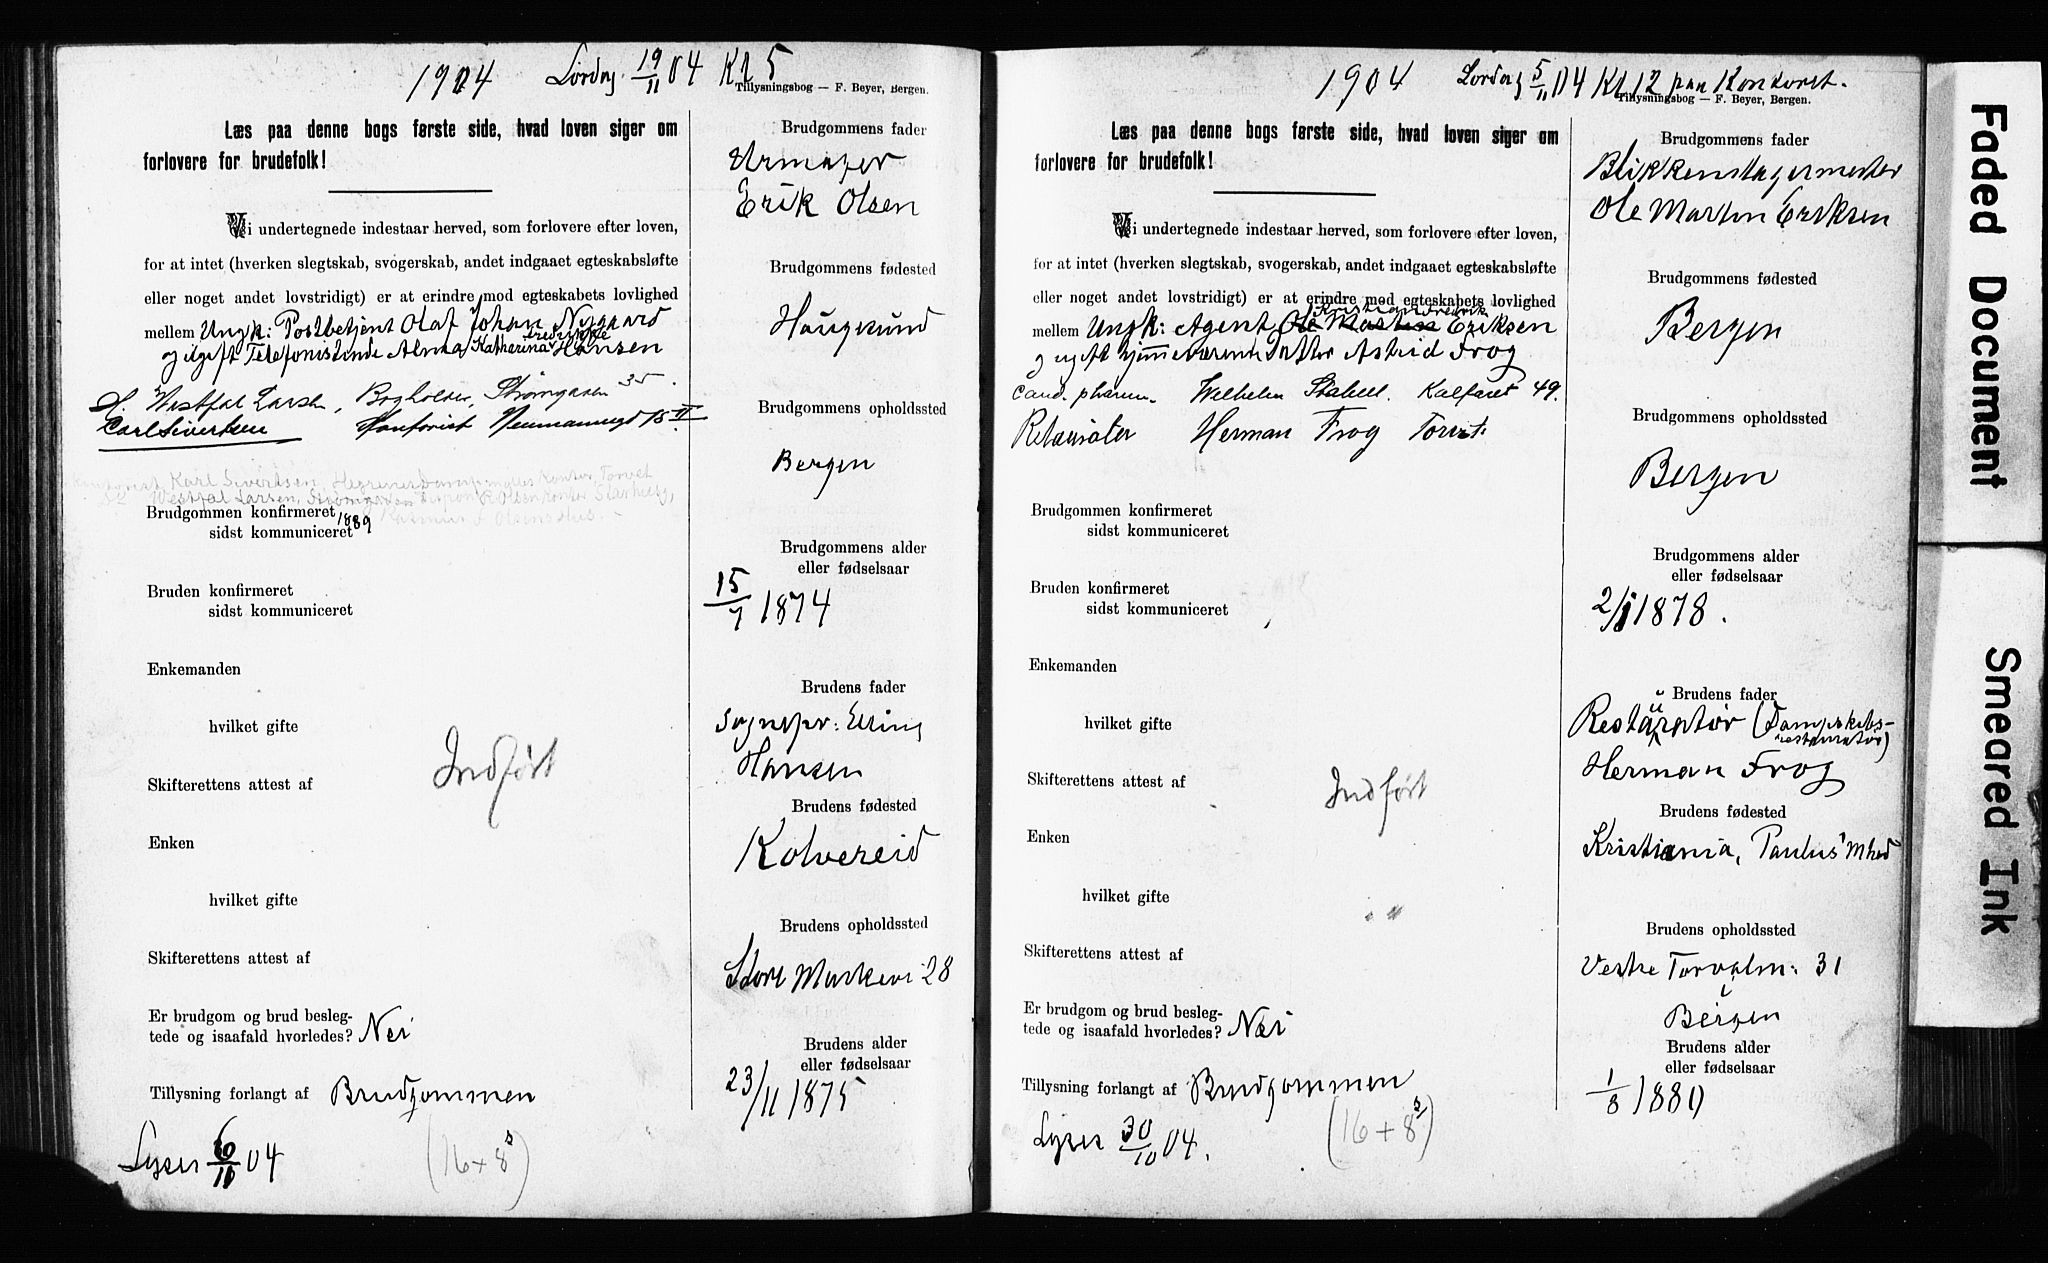 1904 Lørdag 19/11 04 Kl 5
Tillysningsbog — F. Beyer, Bergen.
Læs paa denne bogs første side, hvad loven siger om
forlovere for brudefolk!
Vi undertegnede indestaar herved, som forlovere efter loven,
for at intet (hverken slegtskab, svogerskab, andet indgaaet egteskabsløfte
eller noget andet lovstridigt) er at erindre mod egteskabets lovlighed
mellem Ungk: Postbetjent Olaf Johan Nygaard
og ugift Telefonistinde Alma Katharina Fredrikke Hansen
H. Westfal Larsen, Bogholder, Strømgaden 35.
Carl Sivertsen Kontorist Neumannsgd 15 II
Karl Sivertsen, Kontor, Torvet
Westfal Larsen,
Brudgommen konfirmeret 1889
sidst kommuniceret
Bruden konfirmeret
sidst kommuniceret
Enkemanden
hvilket gifte
Skifterettens attest af
Indført
Enken
hvilket gifte
Skifterettens attest af
Er brudgom og brud besleg-
tede og isaafald hvorledes? Nei
Tillysning forlangt af Brudgommen
Lyses 6/11 04 (16+8)
Brudgommens fader
Urmager
Erik Olsen
Brudgommens fødested
Haugesund
Brudgommens opholdssted
Bergen
Brudgommens alder
eller fødselsaar
15/7 1874
Brudens fader
Sognepr: Elling
Hansen
Brudens fødested
Kolvereid
Brudens opholdssted
Store Markevei 28
Brudens alder
eller fødselsaar
23/11 1875
1904 Lørdag 5/11 04 Kl 12 paa Kontoret.
Tillysningsbog — F. Beyer, Bergen.
Læs paa denne bogs første side, hvad loven siger om
forlovere for brudefolk!
Vi undertegnede indestaar herved, som forlovere efter loven,
for at intet (hverken slegtskab, svogerskab, andet indgaaet egteskabsløfte
eller noget andet lovstridigt) er at erindre mod egteskabets lovlighed
Kristian Fredrik
mellem Ungk: Agent Ole Martin Eriksen
og ugift hjemmeværende Datter Astrid Frog
Cand. pharm. Wilhelm Stabell. Kalfaret 49.
Restauratør Herman Frog Torvet
Brudgommen konfirmeret
sidst kommuniceret
Bruden konfirmeret
sidst kommuniceret
Enkemanden
hvilket gifte
Skifterettens attest af
Indført
Enken
hvilket gifte
Skifterettens attest af
Er brudgom og brud besleg-
tede og isaafald hvorledes? Nei
Tillysning forlangt af Brudgommen
Lyses 30/10 04. (16+8)
Brudgommens fader
Blikkenslagermester
Ole Martin Eriksen
Brudgommens fødested
Bergen
Brudgommens opholdssted
Bergen
Brudgommens alder
eller fødselsaar
2/1 1878.
Brudens fader
Restauratør (Dampskibs-
restauratør)
Herman Frog
Brudens fødested
Kristiania, Paulus' Mhed
Brudens opholdssted
Vestre Torvalm: 31
Bergen
Brudens alder
eller fødselsaar
1/8 1880
Faded Document
Smeared Ink